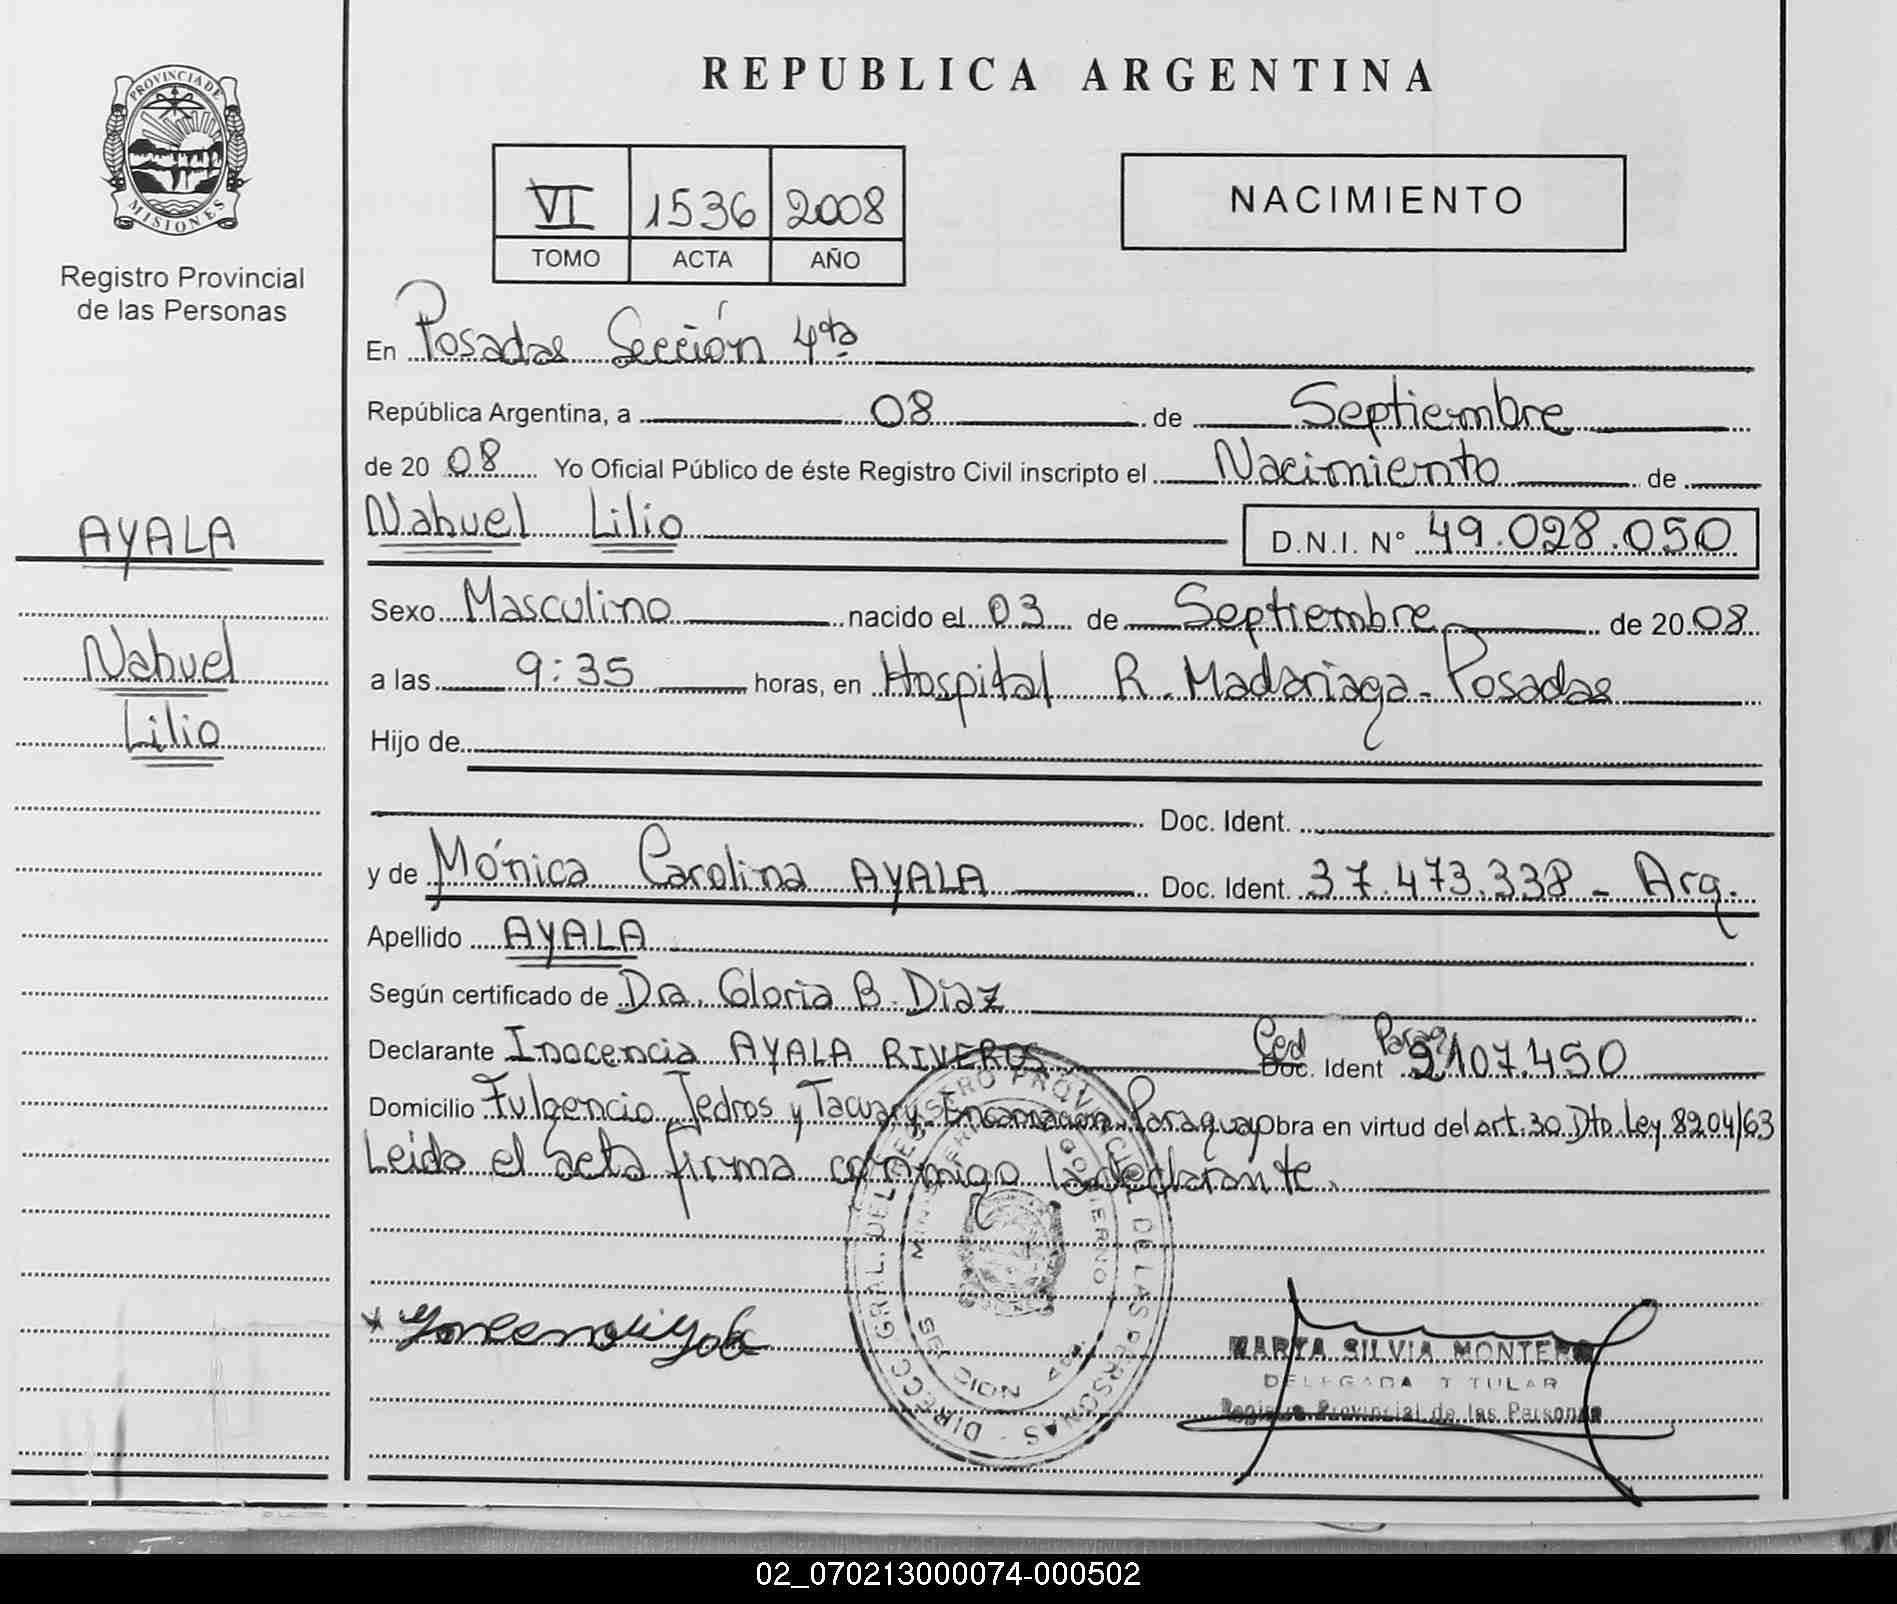 PROVINCIA DE
MISIONES
Registro Provincial
de las Personas
AYALA
Nahuel
Lilio
REPUBLICA ARGENTINA
VI 1536 2008
TOMO ACTA AÑO
NACIMIENTO
En Posadas Sección 4ta
República Argentina, a 08 de Septiembre
de 2008 Yo Oficial Público de éste Registro Civil inscripto el Nacimiento de
Nahuel Lilio D.N.I. N° 49.028.050
Sexo Masculino nacido el 03 de Septiembre de 2008
a las 9:35 horas, en Hospital R. Madariaga - Posadas
Hijo de
Doc. Ident.
y de Mónica Carolina AYALA Doc. Ident. 37.473.338 - Arg.
Apellido AYALA
Según certificado de Dra. Gloria B. Díaz
Declarante Inocencia AYALA RIVEROS Ced Doc. Ident Parag 2107.450
Domicilio Fulgencio Jedros y Tacuary - Encarnación Paraguay Obra en virtud del art. 30 Dto Ley 8204/63
Leida el acta firma conmigo la declarante.
DIRECC. GRAL. DEL REGISTRO PROVINCIAL DE LAS PERSONAS
GOBIERNO
MARTA SILVIA MONTERO
DELEGADA TITULAR
Registro Provincial de las Personas
02_070213000074-000502